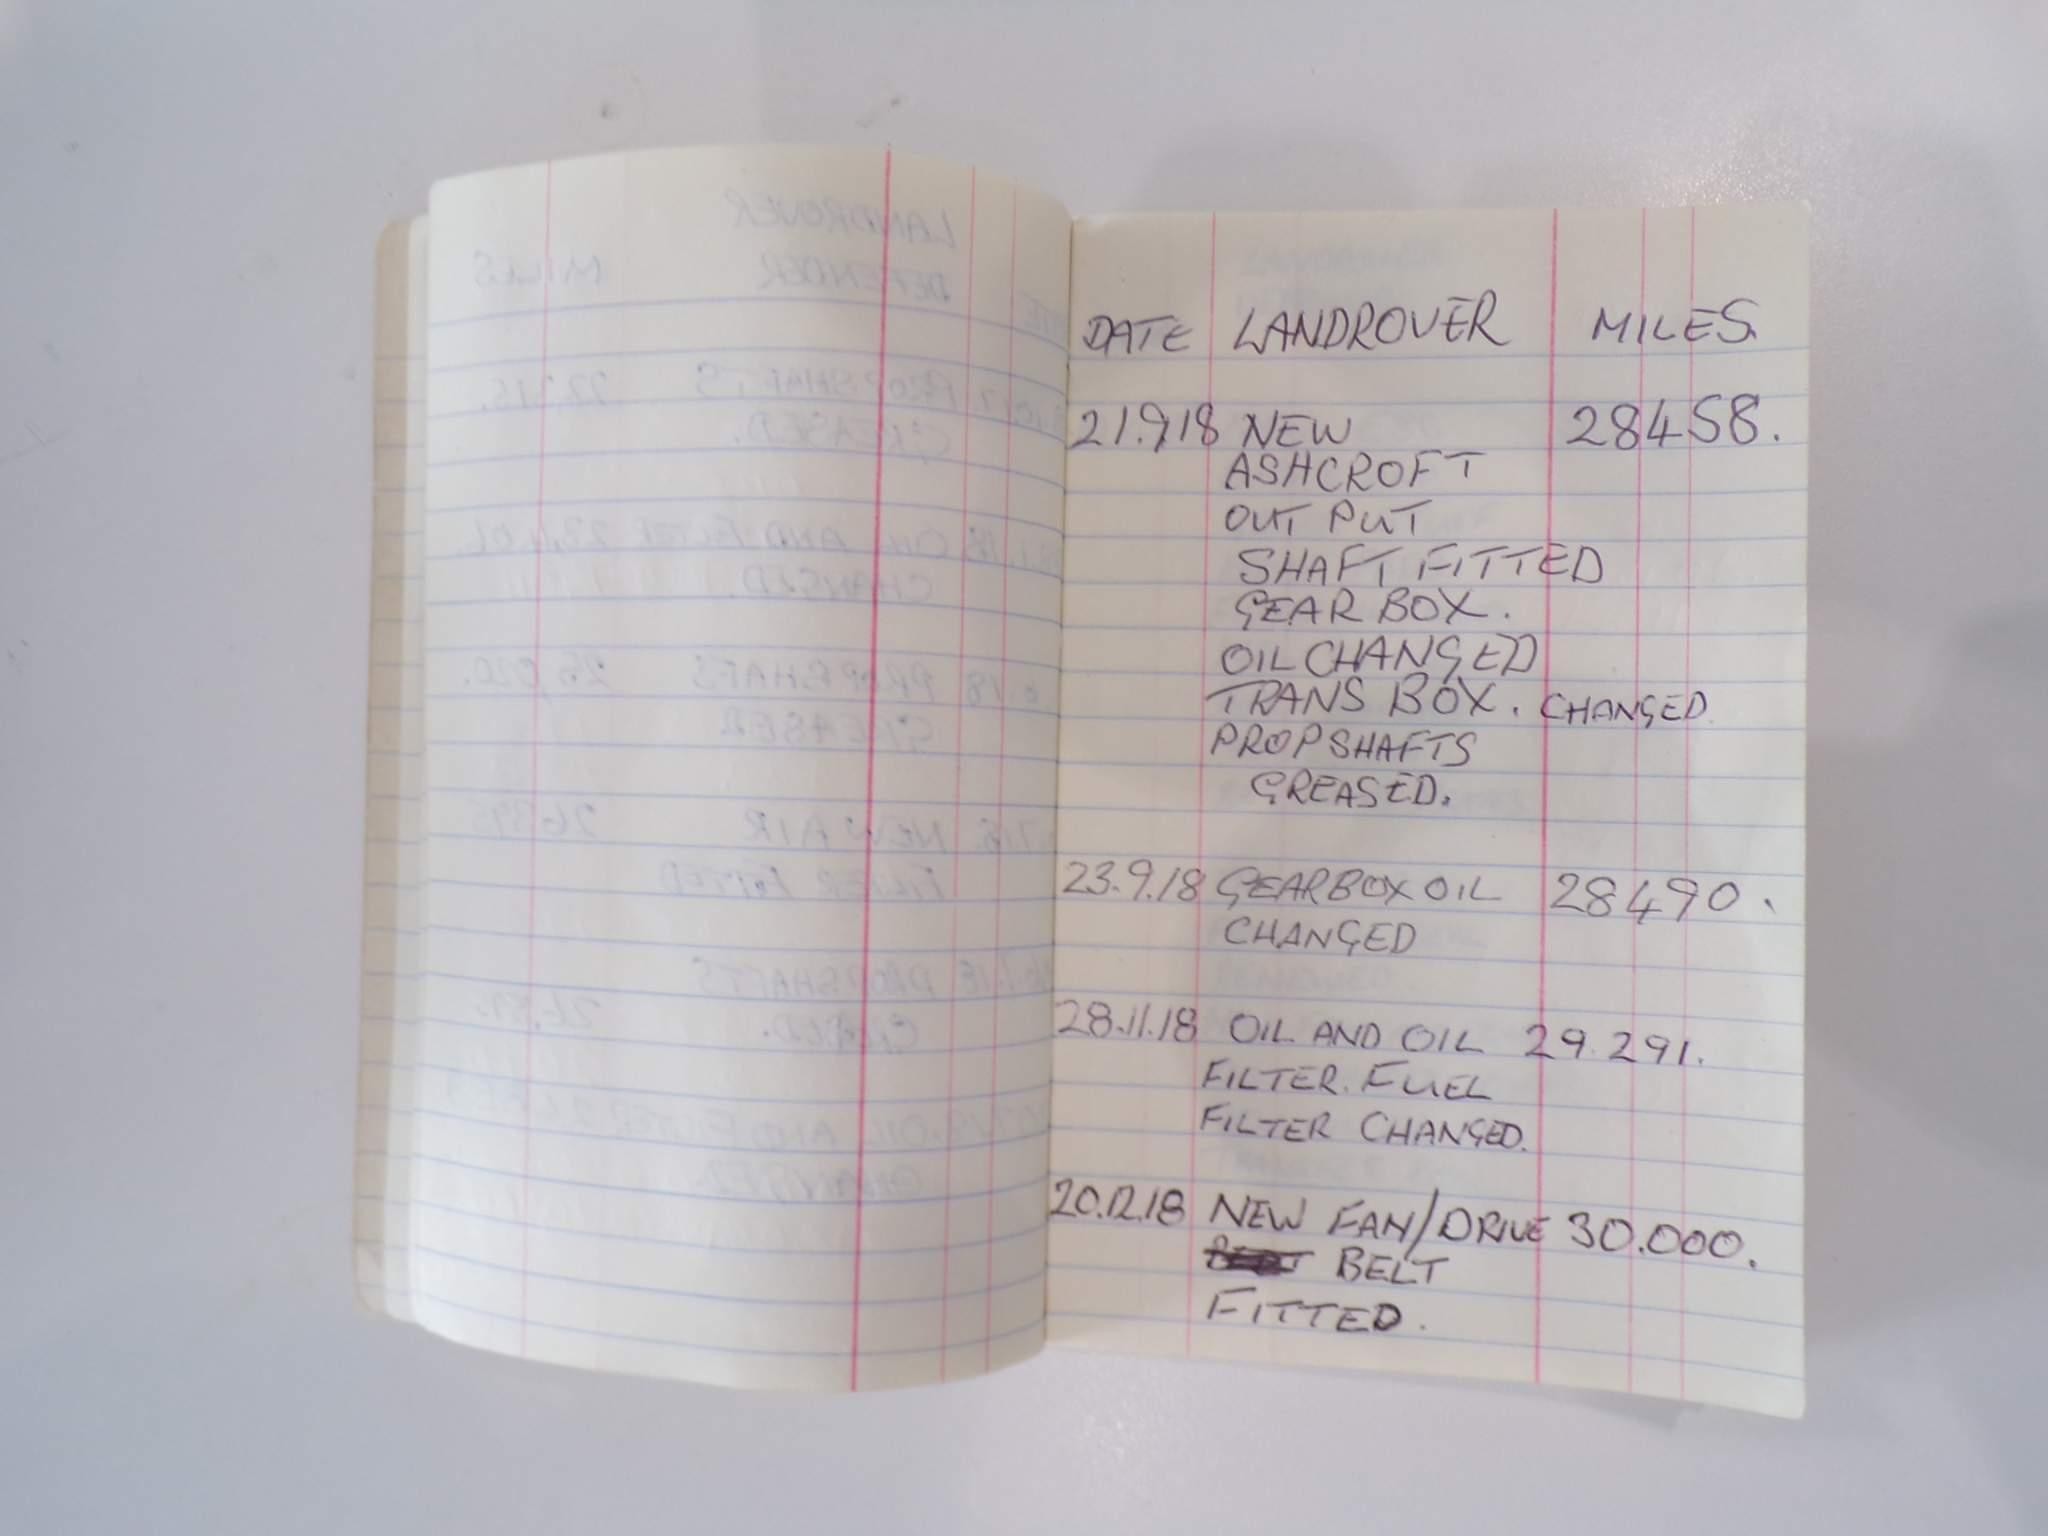 DATE LANDROVER MILES.
21.9.18 NEW 28458.
ASHCROFT
OUT PUT
SHAFT FITTED
GEAR BOX.
OIL CHANGED
TRANS BOX. CHANGED.
PROPSHAFTS
GREASED.
23.9.18 GEARBOX OIL 28490.
CHANGED
28.11.18 OIL AND OIL 29.291.
FILTER. FUEL
FILTER CHANGED.
20.12.18 NEW FAN/DRIVE 30.000.
BELT
FITTED.